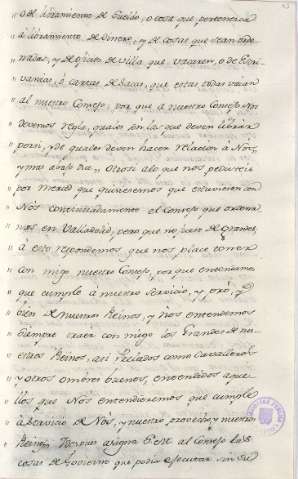 " ò de libramiento de sueldo, ò cosa que pertenezca
" à libramiento de Dinero, y de cosas que sean
" nadas, y de oficio de villa que vacaren, ò de Escri-
" vanias, ò cartas de Sacas, que estas todas vaian
" al nuestro Consejo, por que à nuestro Consejo
" devemos regla, quales son las que deven librar
" por si, y de quales deven hacer relacion à Nos,
" y mas avajo dice = Otrosi alo que nos pedisteis
" por merced que quisiesemos que estuviesen con
" Nos continuadamente el Consejo que ordena-
" mos en Valladolid, pero que no sean de Grandes,
" à esto respondemos que nos place traer
" con migo nuestro Consejo, por que entendemos
" que cumple à nuestro servicio, y pro, y
" bien de nuestros Reinos, y nos entendemos
" siempre traer con migo los Grandes de nu-
" estros Reinos, asi Prelados como Cavalleros
" y otros omvres buenos, entendidos aque-
" llos que Nos entendieremos que cumple
" à servicio de Nos, y nuestro provecho, y nuestros
" Reinos
cosas de Govierno que podia ejecutar sin su